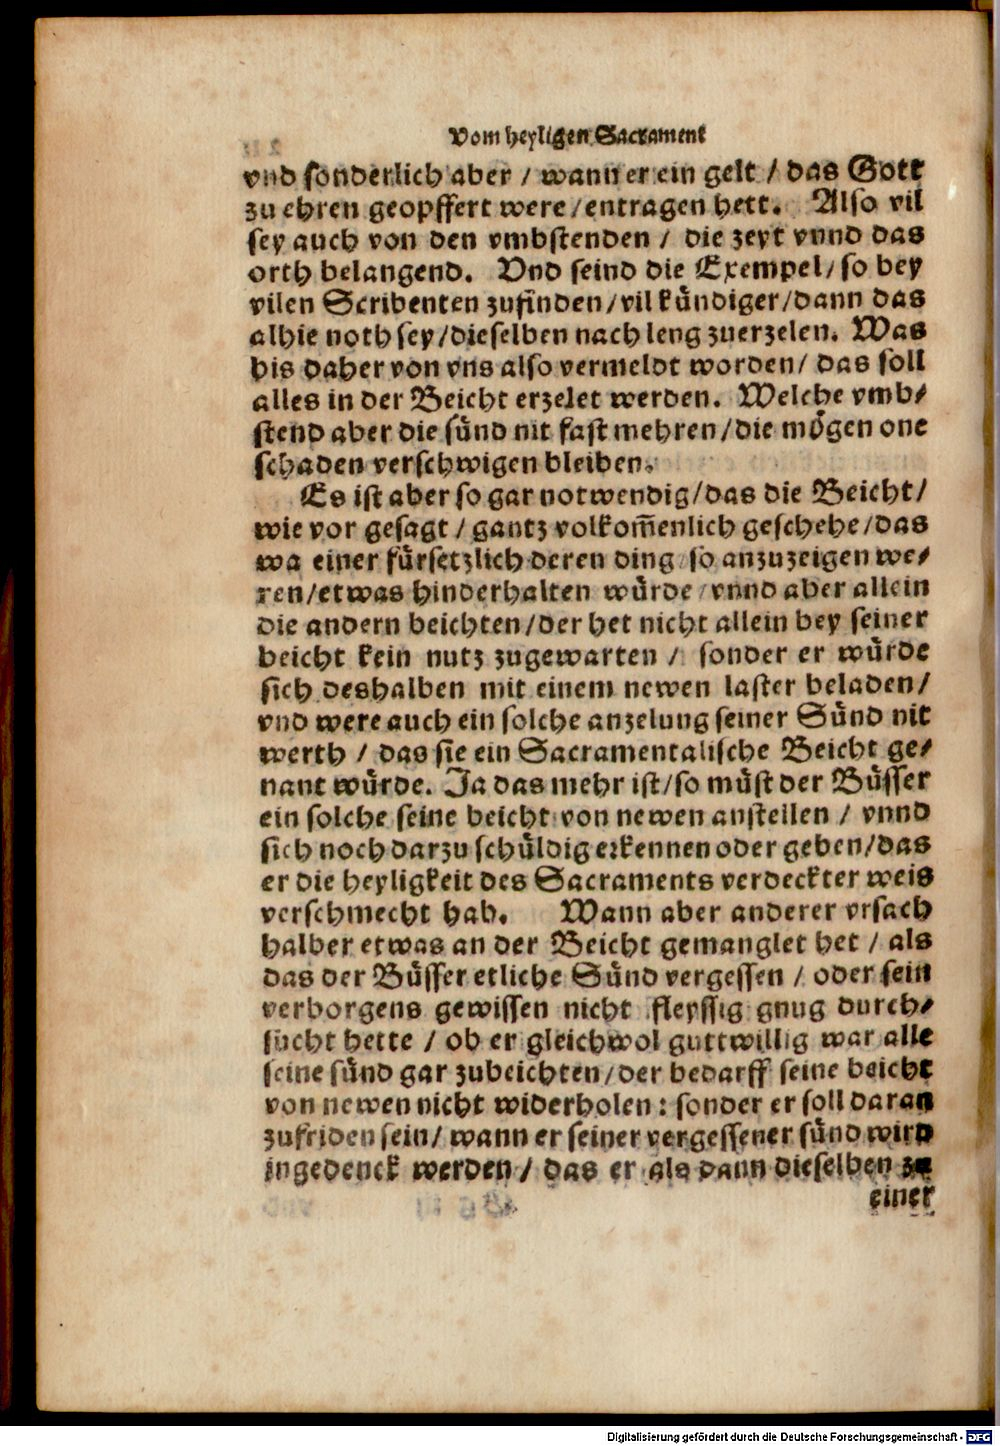 Vom heyligen Sacrament
vnd sonderlich aber / wann er ein gelt / das Gott
zu ehren geopffert were / entragen hett. Also vil
sey auch von den vmbstenden / die zeyt vnnd das
orth belangend. Vnd seind die Exempel / so bey
vilen Scribenten zufinden / vil kündiger / dann das
alhie noth sey / dieselben nach leng zuerzelen. Was
bis daher von vns also vermeldt worden / das soll
alles in der Beicht erzelet werden. Welche vmb⸗
stend aber die sünd nit fast mehren / die mögen one
schaden verschwigen bleiben.
Es ist aber so gar notwendig / das die Beicht /
wie vor gesagt / gantz volkom̃enlich geschehe / das
wa einer fürsetzlich deren ding / so anzuzeigen we⸗
ren / etwas hinderhalten würde / vnnd aber allein
die andern beichten / der het nicht allein bey seiner
beicht kein nutz zugewarten / sonder er würde
sich deshalben mit einem newen laster beladen /
vnd were auch ein solche anzelung seiner Sünd nit
werth / das sie ein Sacramentalische Beicht ge⸗
nant würde. Ja das mehr ist / so müst der Büsser
ein solche seine beicht von newen anstellen / vnnd
sich noch darzu schüldig erkennen oder geben / das
er die heyligkeit des Sacraments verdeckter weis
verschmecht hab. Wann aber anderer vrsach
halber etwas an der Beicht gemanglet het / als
das der Büsser etliche Sünd vergessen / oder sein
verborgens gewissen nicht fleyssig gnug durch⸗
sücht hette / ob er gleichwol guttwillig war alle
seine sünd gar zubeichten / der bedarff seine beicht
von newen nicht widerholen : sonder er soll daran
zufriden sein / wann er seiner vergessener sünd wird
ingedenck werden / das er als dann dieselben zu
einer
Digitalisierung gefördert durch die Deutsche Forschungsgemeinschaft - DFG